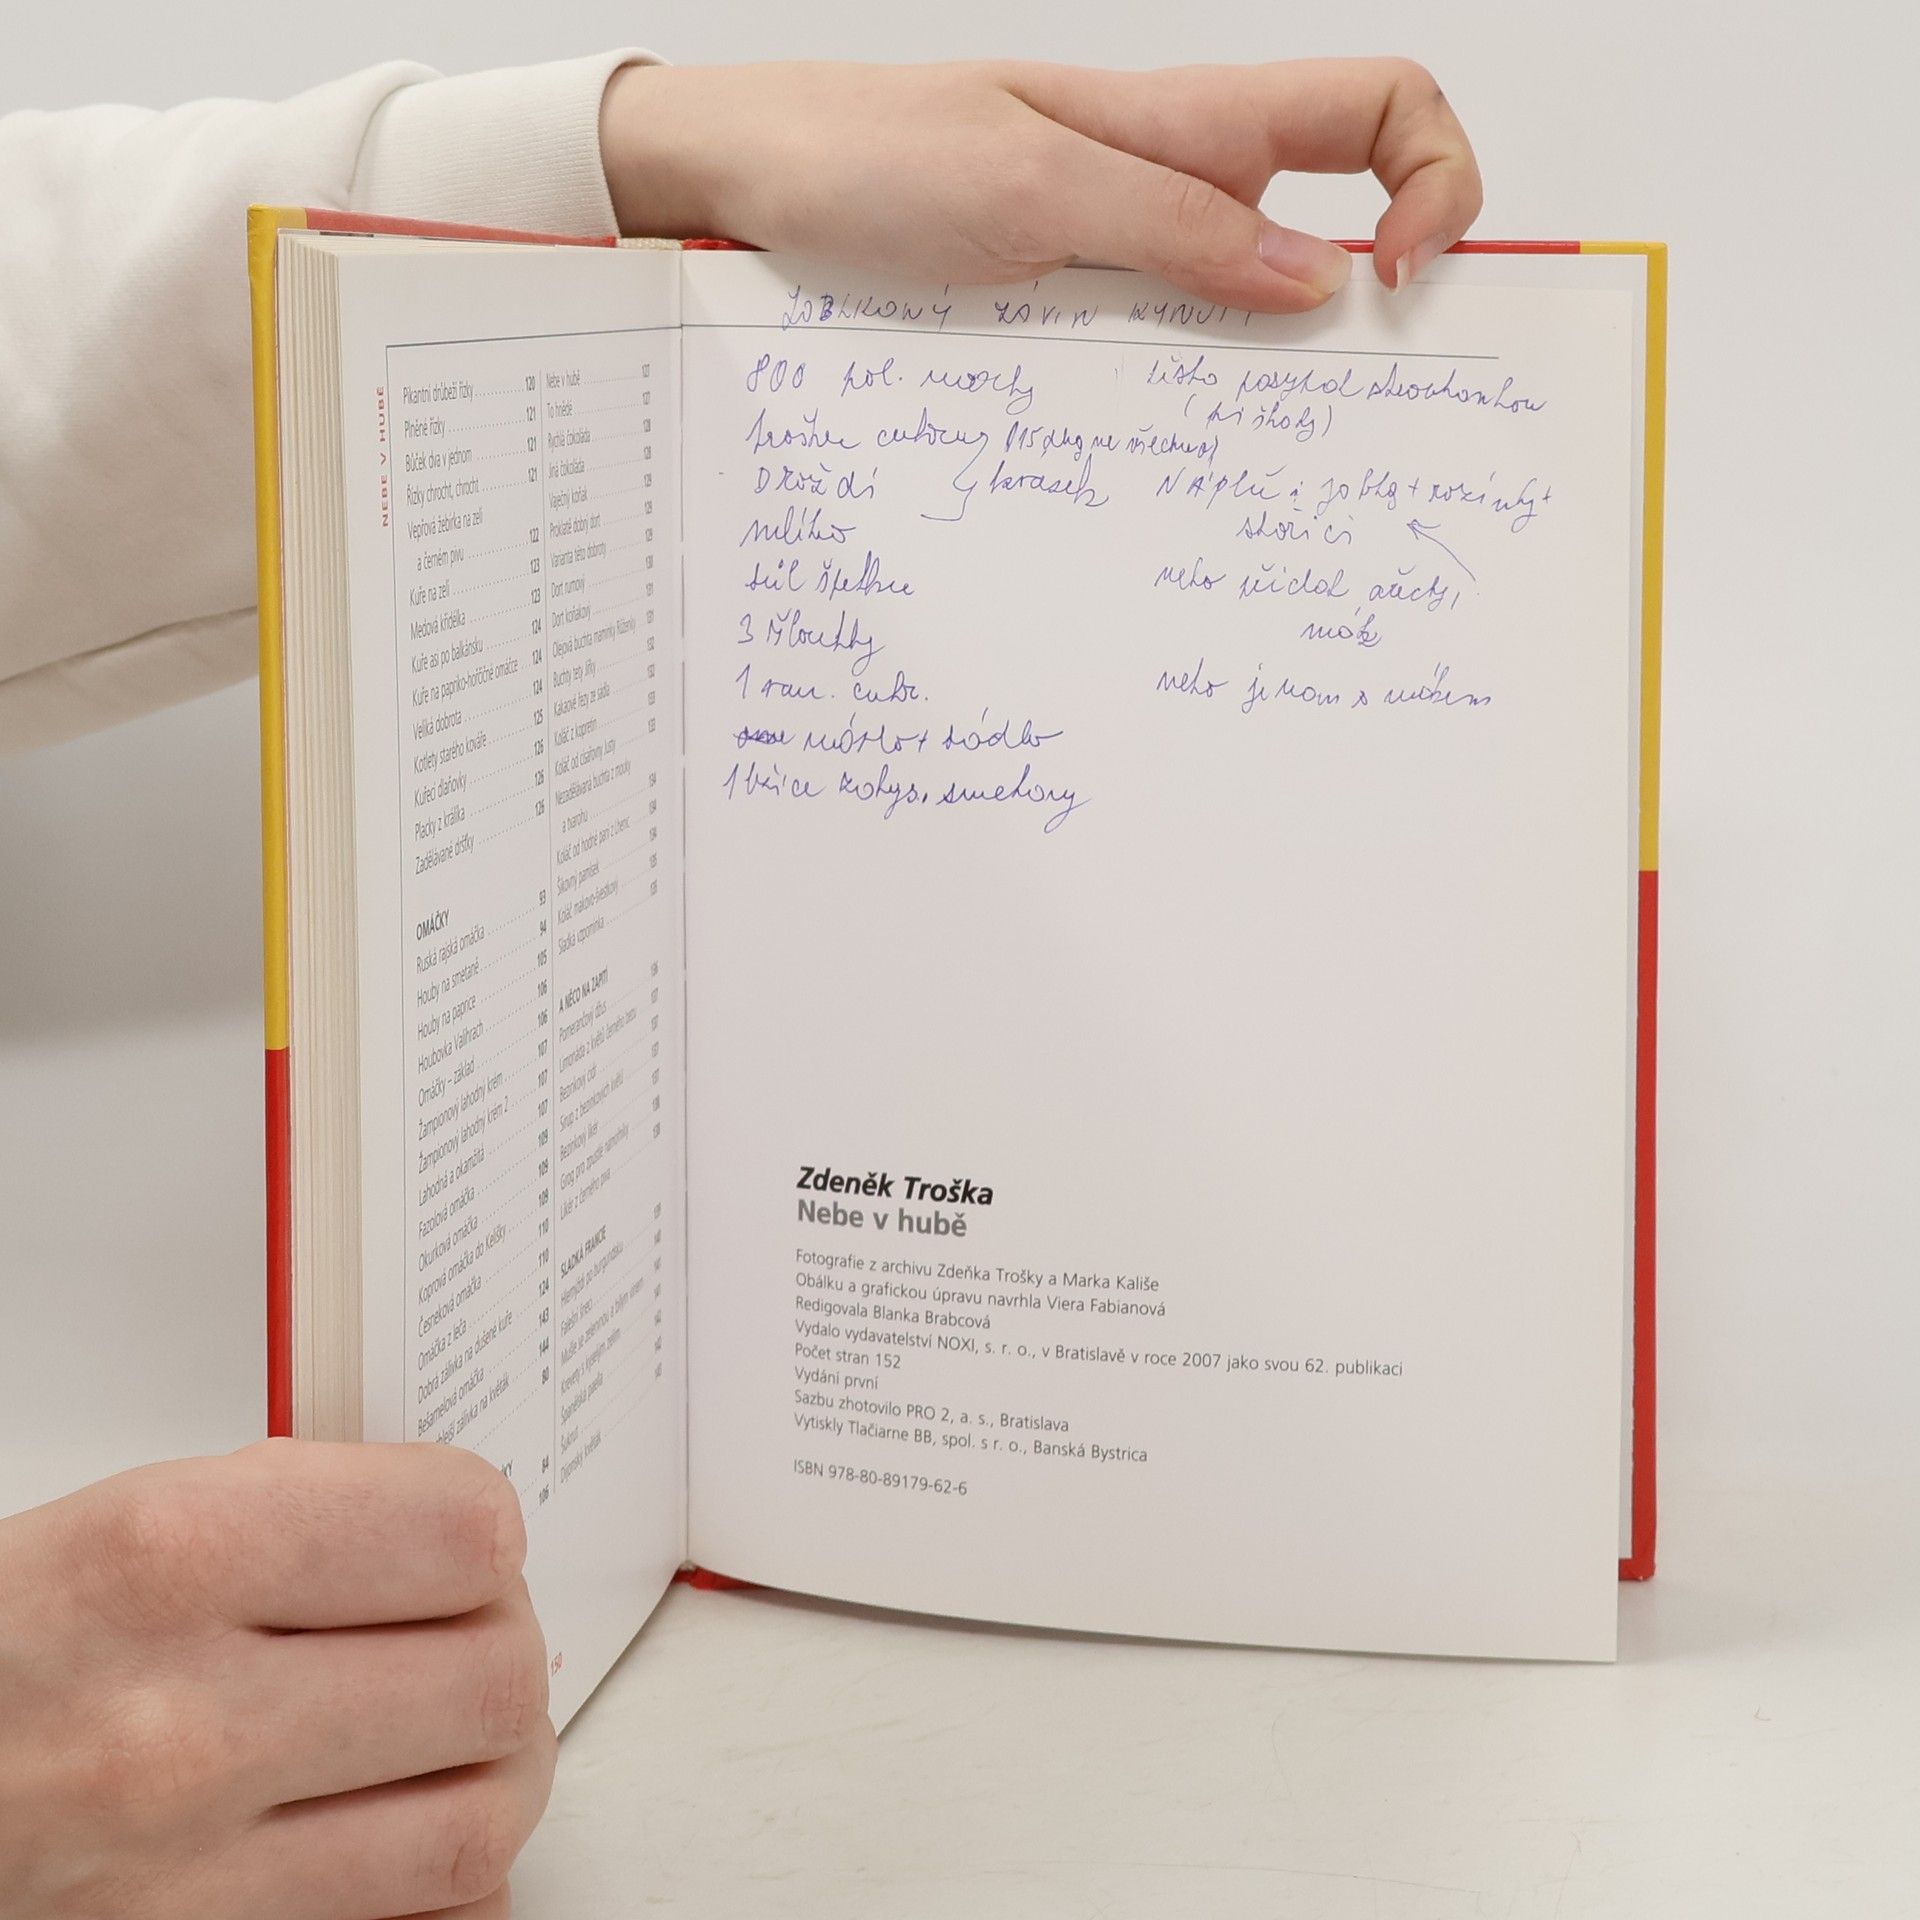 NEBE V HUBĚ
Pikantní drůbeží řízky 120
Plněné řízky 121
Bůček dva v jednom 121
Řízky chrocht, chrocht 121
Vepřová žebírka na zelí
a černém pivu 122
Kuře na zelí 123
Medová křidélka 123
Kuře asi po balkánsku 124
Kuře na papriko-hořčičné omáčce 124
Veliká dobrota 124
Kotlety starého kováře 125
Kuřecí dlaňovky 126
Placky z králíka 126
Zadělávané dršťky 126
OMÁČKY
Ruská rajská omáčka 93
Houby na smetaně 94
Houby na paprice 105
Houbovka Valihrach 106
Omáčky – základ 106
Žampionový lahodný krém 107
Žampionový lahodný krém 2 107
Lahodná a okamžitá 107
Fazolová omáčka 109
Okurková omáčka 109
Koprová omáčka do Kelišky 109
Česneková omáčka 110
Omáčka z leča 110
Dobrá zálivka na dušené kuře 124
Bešamelová omáčka 143
zálivka na květák 144
80
84
106
Nebe v hubě 127
To hnědé 127
Rychlá čokoláda 128
Jiná čokoláda 128
Vaječný koňak 129
Prokletě dobrý dort 129
Varianta této dobroty 129
Dort rumový 130
Dort koňakový 131
Olejová buchta maminky Růženky 131
Buchty tety Jiřky 132
Kakaové řezy ze sádla 132
Koláč z kopretin 133
Koláč od císařovny Justy 133
Nezadělávaná buchta z mouky
a tvarohu 134
Koláč od hodné paní z Lhenic 134
Šikovný pamlsek 134
Koláč makovo-švestkový 135
Sladká vzpomínka 135
A NĚCO NA ZAPITÍ
Pomerančový džus 136
Limonáda z květů černého bezu 137
Bezinkový cidr 137
Sirup z bezinkových květů 137
Bezinkový likér 137
Grog pro zpustlé námořníky 138
Likér z černého piva 138
SLADKÁ FRANCIE 139
Hlemýždi po burgundsku 140
Falešní šneci 141
Mušle se zeleninou a bílým vínem 141
Krevety s kyselým zelím 142
Španělská paella 142
Dijonský květák 143
150
JABLKOVÝ ZÁVIN KYNUTÝ
800 pol. mouky
trošku cukru (15 dkg ne všechno)
Droždí } kvásek
mlíko
sůl špetku
3 žloutky
1 van. cukr.
máslo + sádlo
1 lžíce kokys. smetany
těsto posypat strouhankou
(piškoty)
Náplň: jablka + rozinky +
skořici
nebo přidat ořechy,
mák
nebo jenom s mákem
Zdeněk Troška
Nebe v hubě
Fotografie z archivu Zdeňka Trošky a Marka Kališe
Obálku a grafickou úpravu navrhla Viera Fabianová
Redigovala Blanka Brabcová
Vydalo vydavatelství NOXI, s. r. o., v Bratislavě v roce 2007 jako svou 62. publikaci
Počet stran 152
Vydání první
Sazbu zhotovilo PRO 2, a. s., Bratislava
Vytiskly Tlačiarne BB, spol. s r. o., Banská Bystrica
ISBN 978-80-89179-62-6